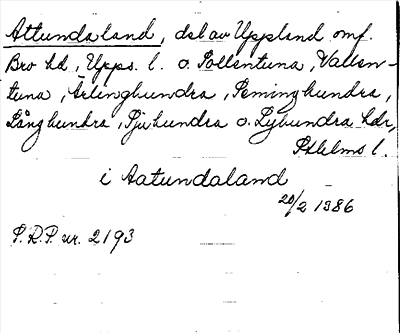 Attundaland, del av Uppland omf.
Bro hd, Upps. l. o. Sollentuna, Vallen-
tuna, Ärlinghundra, Seminghundra,
Långhundra, Sjuhundra o. Lyhundra hdr,
Sthlms l.
i Aatundaland
20/2 1386
S.R.P. nr. 2193